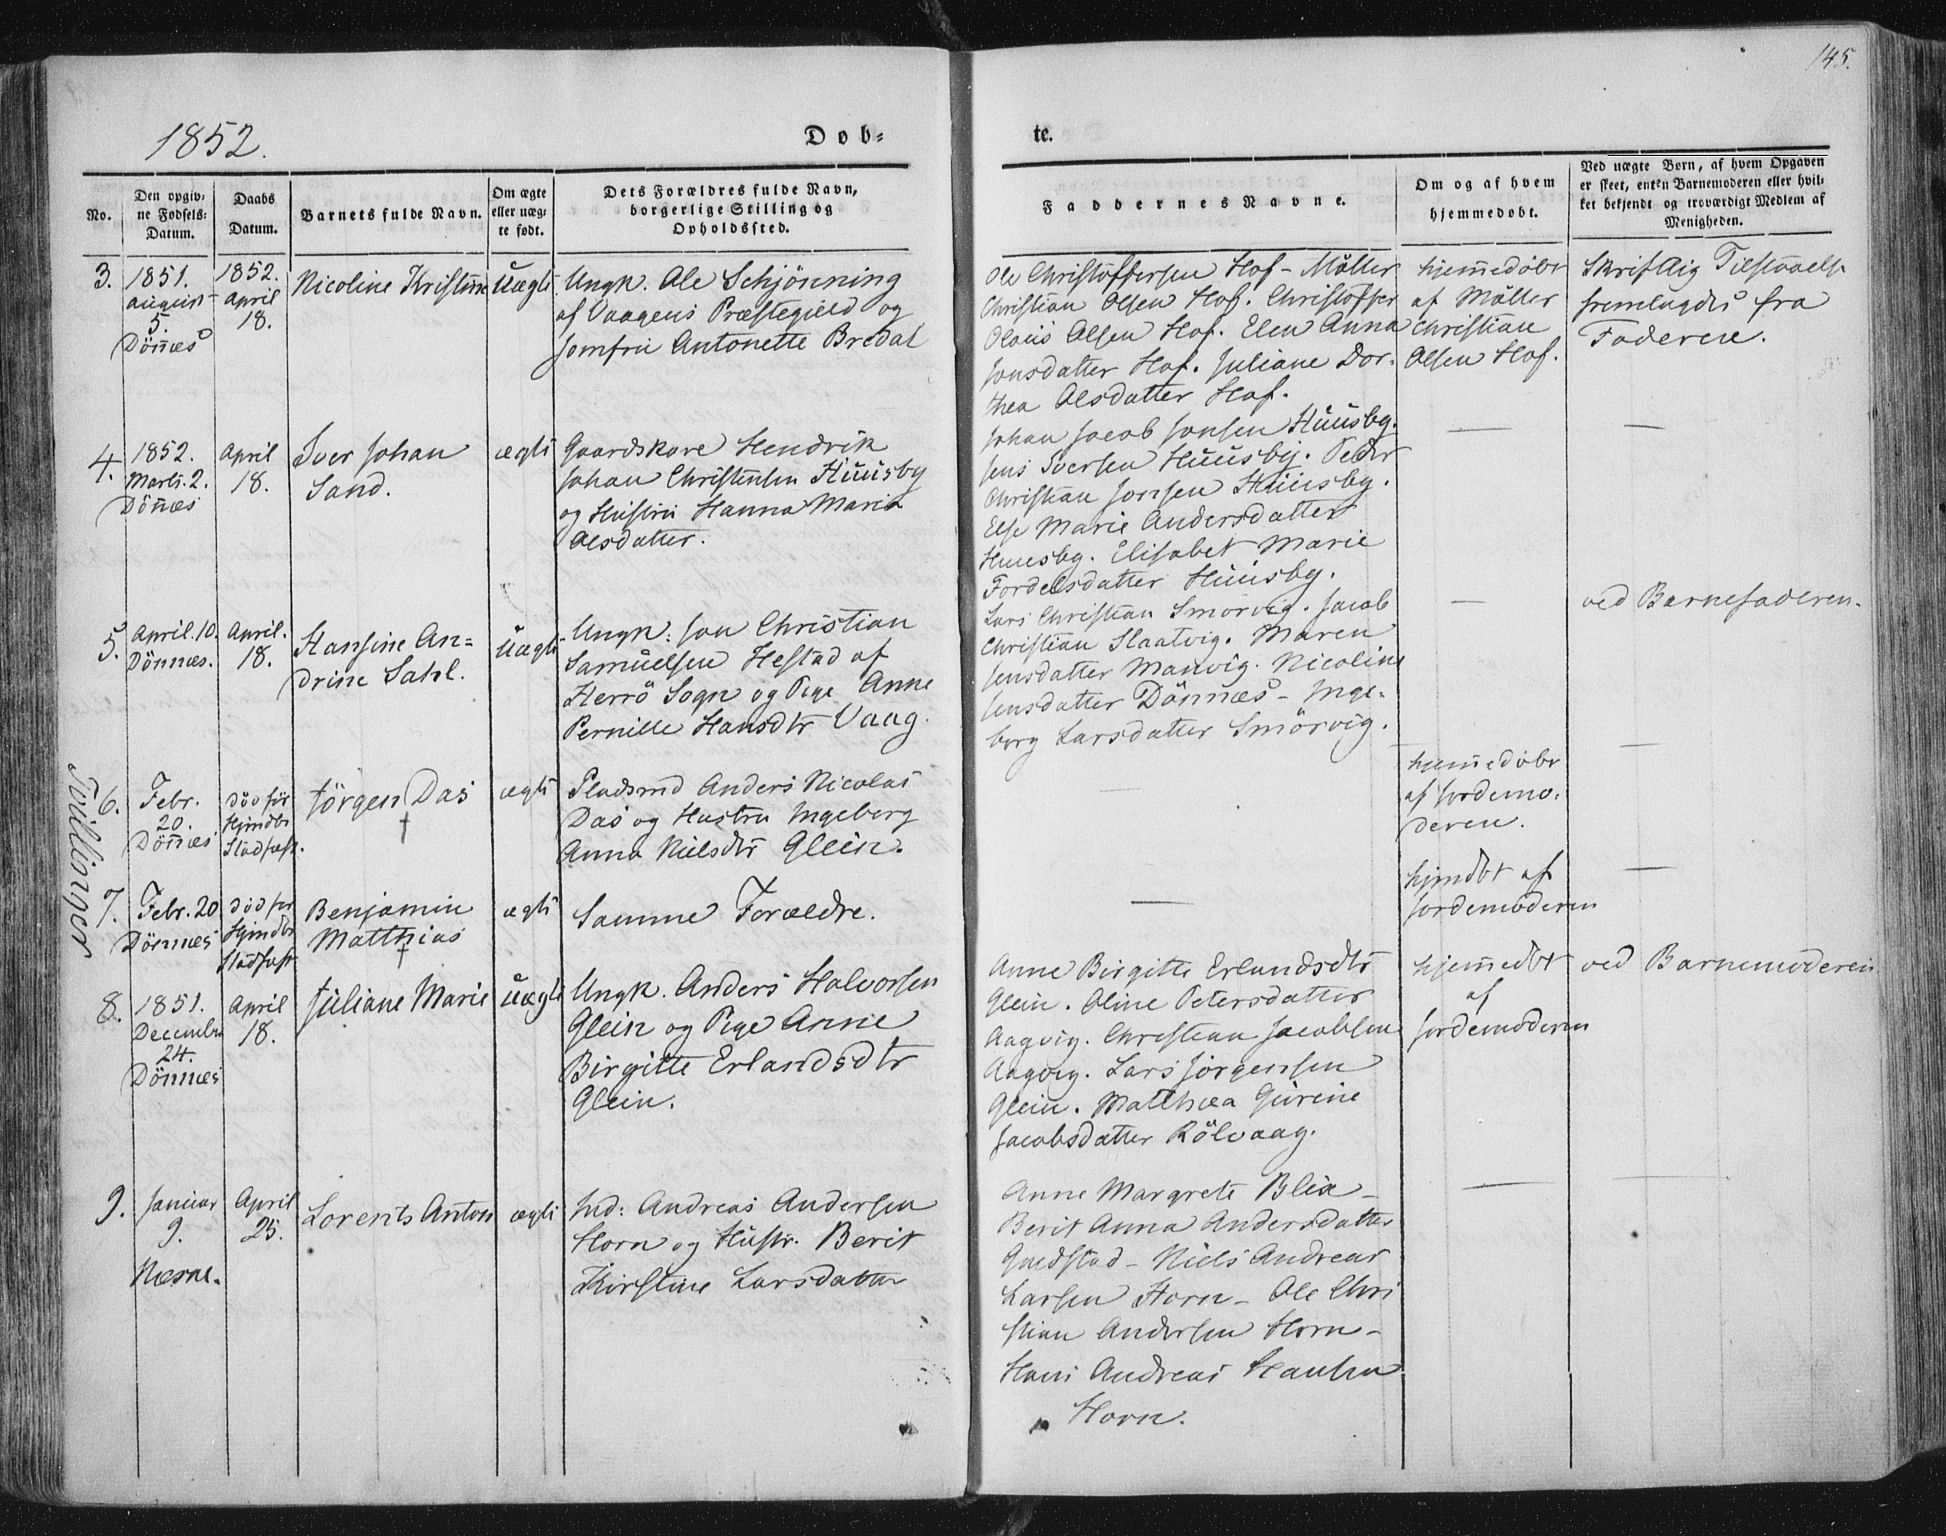 145.
1852.
Døb-
te.
No.
Den opgiv-
ne Fødsels-
Datum.
Daabs
Datum.
Barnets fulde Navn.
Om ægte
eller uæg-
te født.
Dets Forældres fulde Navn,
borgerlige Stilling og
Opholdssted.
Faddernes Navne.
Om og af hvem
hjemmedøbt.
Ved uægte Børn, af hvem Opgaven
er skeet, enten Barnemoderen eller hvil-
ket bekjendt og troværdigt Medlem af
Menigheden.
3.
1851.
august
5.
Dönnes
1852.
April
18.
Nicoline Kristine
Uægte
Ungk. Ole Schjönning
af Vaagens Præstegield og
Jomfru Antonette Bredal
Ole Christoffersen Hof - Möller
Christian Olsen Hof. Christoffer
Olaus Olsen Hof. Elen Anna
Jonsdatter Hof. Juliane Dor-
thea Olsdatter Hof.
hjemedöbt
af Möller
Christian
Olsen Hof.
Skriftlig Tilstaaelse
fremlagdes fra
Faderen.
4.
1852.
Marts. 2.
Dönnes
April
18.
Iver Johan
Sand.
ægte
Gaardskare Hendrik
Johan Christensen Huusby
og Hustru Hanna Maria
Olsdatter.
Johan Jacob Jonsen Huusby.
Jens Iversen Huusby. Peder
Christian Jonsen Huusby.
Else Marie Andersdatter
Huusby. Elisabet Marie
Fordelsdatter Huusby.
5.
April. 10.
Dönnæs.
April.
18.
Hansine An-
drine Sahl.
Uægte
Ungk: Jon Christian
Samuelsen Hestad af
Herrö Sogn og Pige Anne
Pernille Hansdtr Vaag.
Lars Christian Smörvig. Jacob
Christian Slaatvig. Maren
Jensdatter Manvig. Nicoline
Jensdatter Dönnæs - Inge-
borg Larsdatter Smörvig.
ved Barnefaderen.
Tvillinger
6.
Febr.
20.
Dönnes
död för
Hjmdbs
Stadfæst.
Jörgen Das
†
ægte
Pladsmd Anders Nicolai
Das og Hustru Ingeborg
Anna Nielsdtr Glein.
hjemedöbt
af Jordemo-
deren.
7.
Febr. 20
Dönnæs
död för
Hjmdbs
Stadfæst
Benjamin
Matthias
†
ægte
Samme Forældre.
hjmdbt af
Jordemoderen
8.
1851.
December
24.
Dönnæs
April
18.
Juliane Marie
Uægte
Ungk. Anders Halvorsen
Glein og Pige Anne
Birgitte Erlandsdtr
Glein.
Anne Birgitte Erlandsdtr
Glein. Oline Petersdatter
Aagvig. Christian Jacobsen
Aagvig. Lars Jörgensen
Glein. Matthea Gurine
Jacobsdatter Rölvaag.
hjemedbt
af
Jordemoderen
ved Barnemoderen
9.
Januar
9.
Næsne.
April
25.
Lorents Anton
ægte
Ind: Andreas Andersen
Horn og Hustr. Berit
Kirstine Larsdatter
Anne Margrete Blix -
Berit Anna Andersdatter
- Niels Andreas
Larsen Horn - Ole Chri
stian Andersen Horn -
Hans Andreas
Horn.